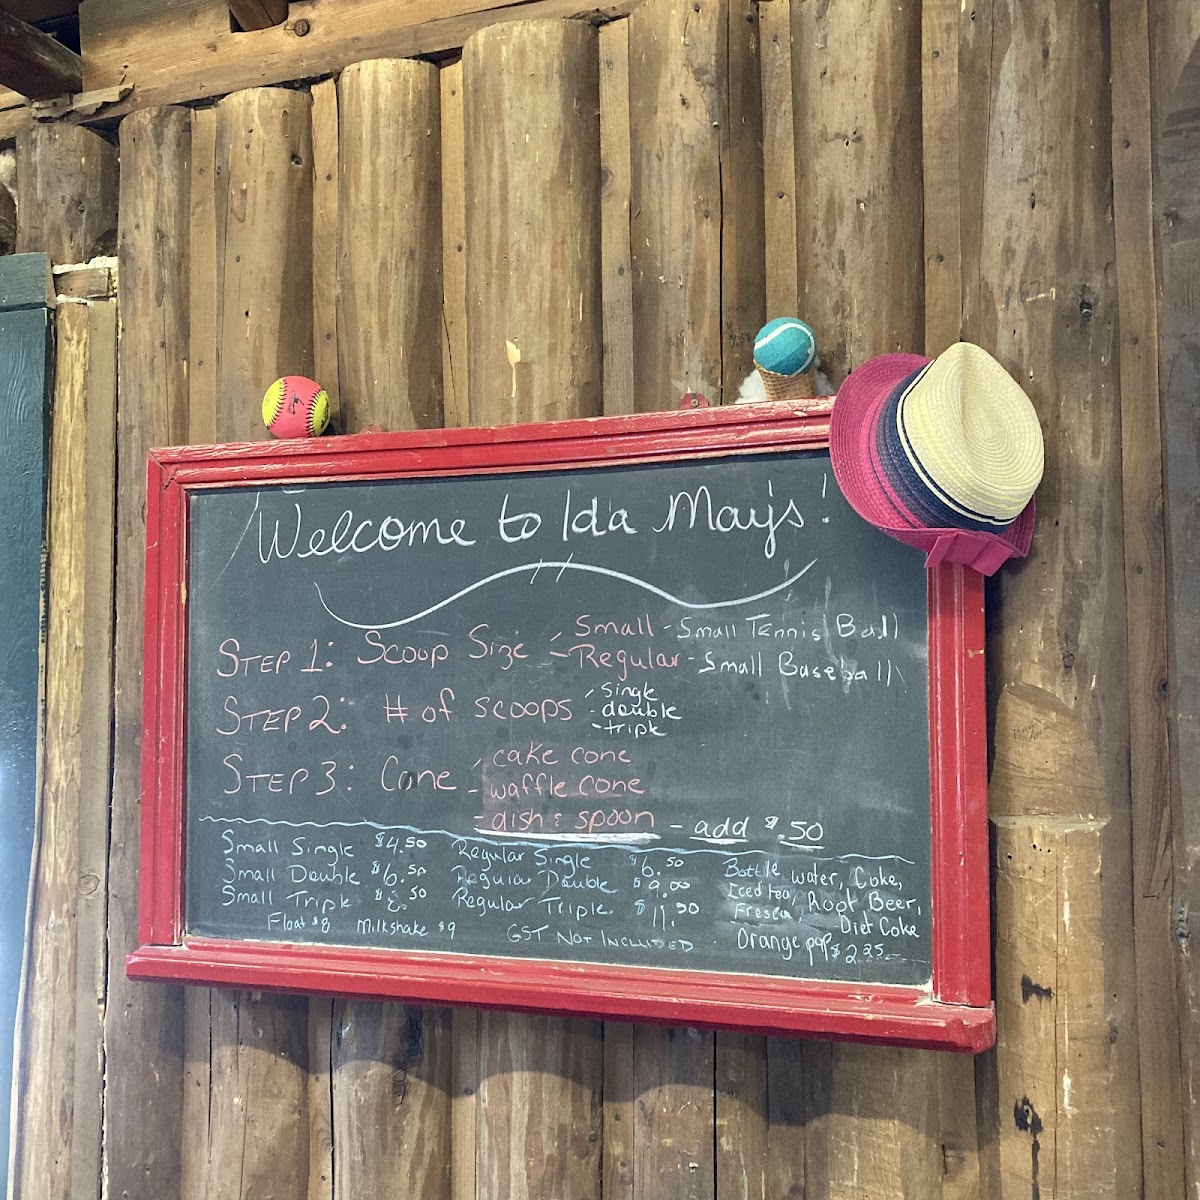 Welcome to Ida May's!
STEP 1: Scoop Size - Small - Small Tennis Ball
- Regular - Small Baseball
STEP 2: # of scoops - single
- double
- triple
STEP 3: Cone - cake cone
- waffle cone
- dish & spoon - add $.50
Small Single $4.50
Small Double $6.50
Small Triple $8.50
Regular Single $6.50
Regular Double $9.00
Regular Triple $11.50
Float $8 Milkshake $9
GST NOT INCLUDED
Bottle water, Coke,
Iced tea, Root Beer,
Fresca, Diet Coke
Orange pop $2.25